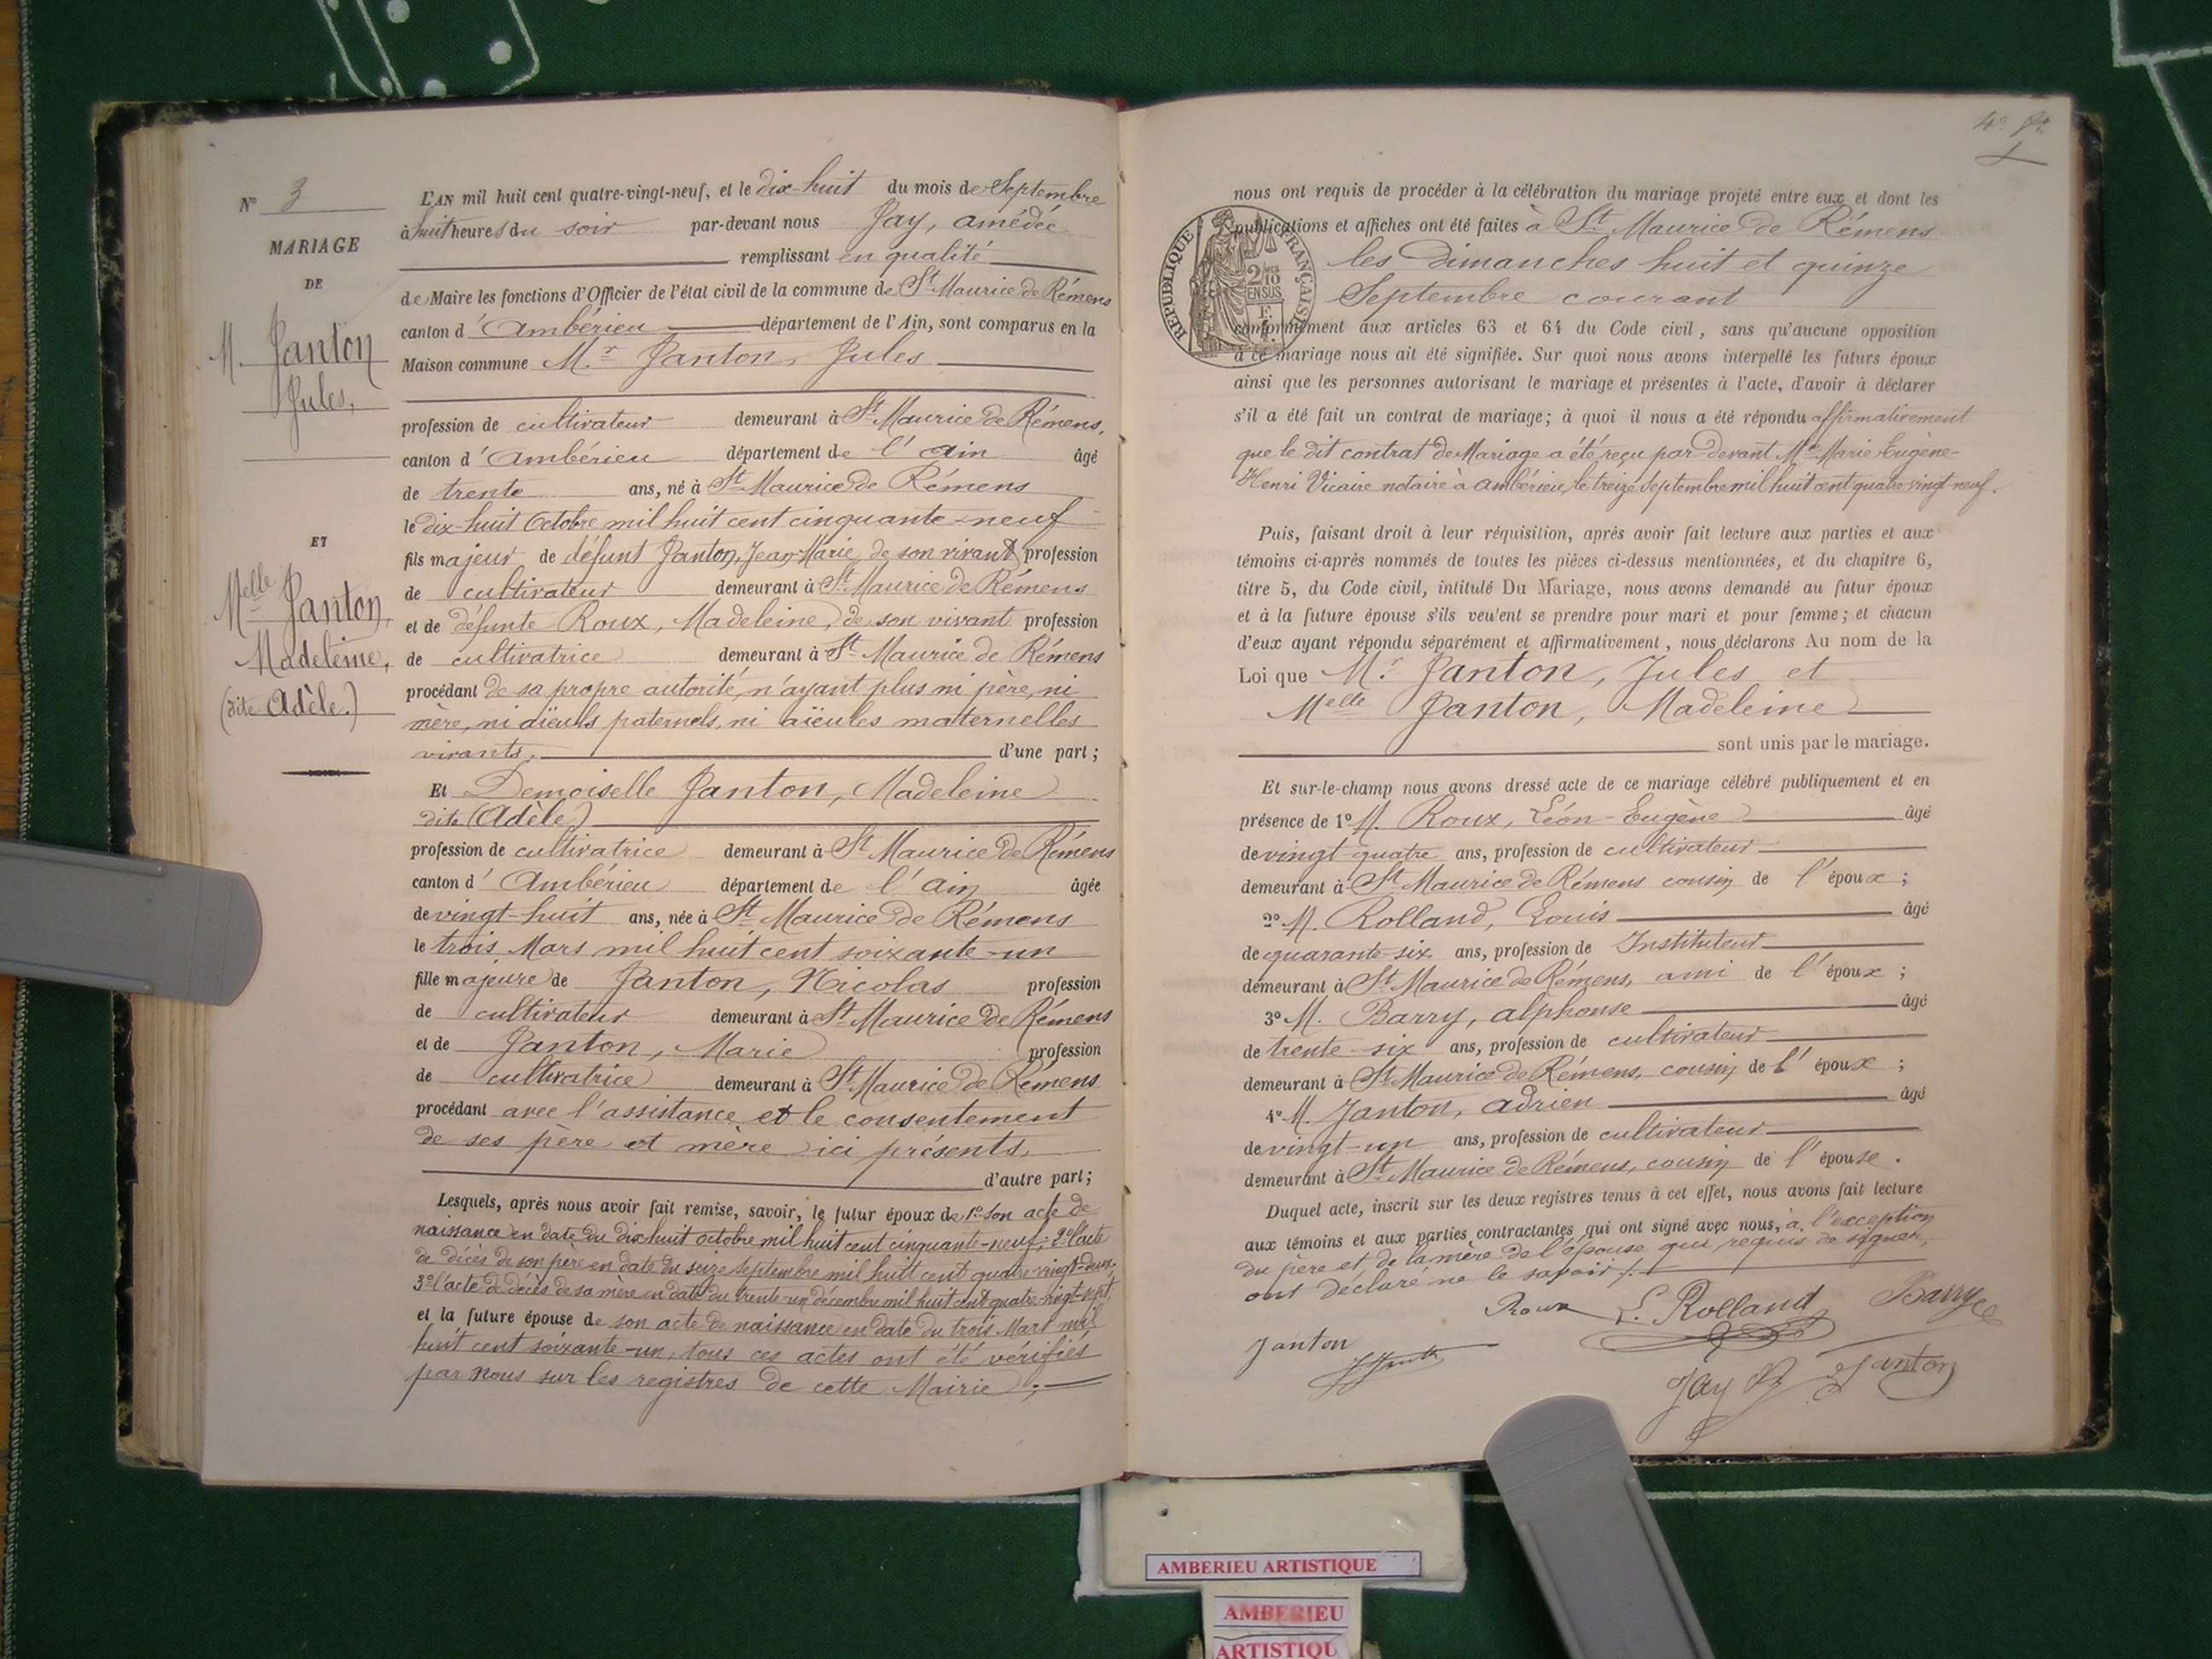 N° 3
MARIAGE
DE
M. Janton
Jules,
ET
Melle Janton,
Madeleine,
(dite Adèle.)
L'AN mil huit cent quatre-vingt-neuf, et le dix-huit du mois de Septembre
à huit heures du soir par-devant nous Jay, amédée
remplissant en qualité
de Maire les fonctions d'Officier de l'état civil de la commune de St Maurice de Rémens
canton d'Ambérieu département de l'Ain, sont comparus en la
Maison commune M.r Janton, Jules
profession de cultivateur demeurant à St Maurice de Rémens,
canton d'Ambérieu département de l'ain âgé
de trente ans, né à St Maurice de Rémens
le dix-huit Octobre mil huit cent cinquante-neuf
fils majeur de défunt Janton, Jean-Marie, de son vivant profession
de cultivateur demeurant à St Maurice de Rémens
et de défunte Roux, Madeleine, de son vivant profession
de cultivatrice demeurant à St Maurice de Rémens
procédant de sa propre autorité, n'ayant plus ni père, ni
mère, ni aïeuls paternels, ni aïeules maternelles
vivants. d'une part;
Et Demoiselle Janton, Madeleine
dite (Adèle)
profession de cultivatrice demeurant à St Maurice de Rémens
canton d'Ambérieu département de l'ain âgée
de vingt-huit ans, née à St Maurice de Rémens
le trois Mars mil huit cent soixante-un
fille majeure de Janton, Nicolas profession
de cultivateur demeurant à St Maurice de Rémens
et de Janton, Marie profession
de cultivatrice demeurant à St Maurice de Rémens
procédant avec l'assistance et le consentement
de ses père et mère ici présents,
d'autre part;
Lesquels, après nous avoir fait remise, savoir, le futur époux de 1° son acte de
naissance en date du dix huit octobre mil huit cent cinquante-neuf; 2° l'acte
de décès de son père en date du seize Septembre mil huit cent quatre-vingt-deux;
3° l'acte de décès de sa mère en date du trente-un décembre mil huit cent quatre-vingt-sept,
et la future épouse de son acte de naissance en date du trois Mars mil
huit cent soixante-un, tous ces actes ont été vérifiés
par nous sur les registres de cette Mairie;
4e
nous ont requis de procéder à la célébration du mariage projeté entre eux et dont les
publications et affiches ont été faites à St Maurice de Rémens
les Dimanches huit et quinze
Septembre courant
RÉPUBLIQUE FRANÇAISE
2/10 EN SUS
conformément aux articles 63 et 64 du Code civil, sans qu'aucune opposition
à ce mariage nous ait été signifiée. Sur quoi nous avons interpellé les futurs époux
ainsi que les personnes autorisant le mariage et présentes à l'acte, d'avoir à déclarer
s'il a été fait un contrat de mariage; à quoi il nous a été répondu affirmativement
que le dit contrat de Mariage a été reçu par devant Me Marie Eugène-
Henri Vicaire notaire à ambérieu, le treize Septembre mil huit cent quatre-vingt-neuf.
Puis, faisant droit à leur réquisition, après avoir fait lecture aux parties et aux
témoins ci-après nommés de toutes les pièces ci-dessus mentionnées, et du chapitre 6,
titre 5, du Code civil, intitulé Du Mariage, nous avons demandé au futur époux
et à la future épouse s'ils veulent se prendre pour mari et pour femme; et chacun
d'eux ayant répondu séparément et affirmativement, nous déclarons Au nom de la
Loi que M.r Janton, Jules et
Melle Janton, Madeleine
sont unis par le mariage.
Et sur-le-champ nous avons dressé acte de ce mariage célébré publiquement et en
présence de 1° M. Roux, Léon-Eugène âgé
de vingt-quatre ans, profession de cultivateur
demeurant à St Maurice de Rémens cousin de l'époux;
2° M. Rolland, Louis âgé
de quarante-six ans, profession de Instituteur
demeurant à St Maurice de Rémens, ami de l'époux;
3° M. Barry, alphonse âgé
de trente-six ans, profession de cultivateur
demeurant à St Maurice de Rémens, cousin de l'époux;
4° M. Janton, adrien âgé
de vingt-un ans, profession de cultivateur
demeurant à St Maurice de Rémens, cousin de l'épouse.
Duquel acte, inscrit sur les deux registres tenus à cet effet, nous avons fait lecture
aux témoins et aux parties contractantes qui ont signé avec nous, à l'exception
du père et de la mère de l'épouse qui, requis de signer,
ont déclaré ne le savoir /.
Roux L. Rolland Barry
Janton
Jay Janton
AMBERIEU ARTISTIQUE
AMBERIEU
ARTISTIQU